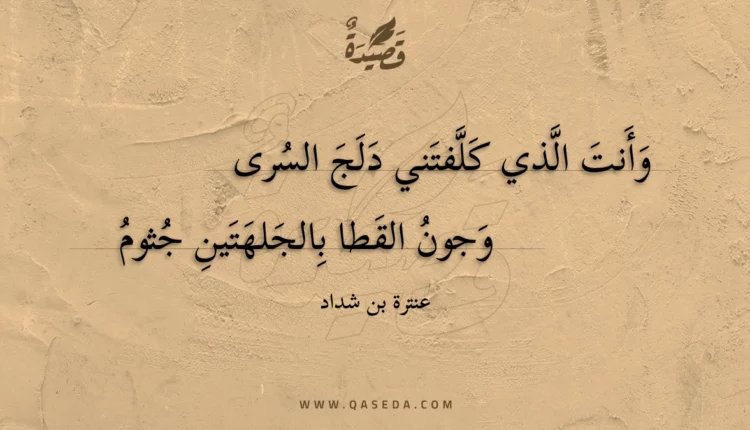 قَصِيدَةٌ
وَأَنتَ الَّذي كَلَّفتَني دَلَجَ السُرى
وَجونُ القَطا بِالجَلهَتَينِ جُثومُ
عنترة بن شداد
WWW.QASEDA.COM